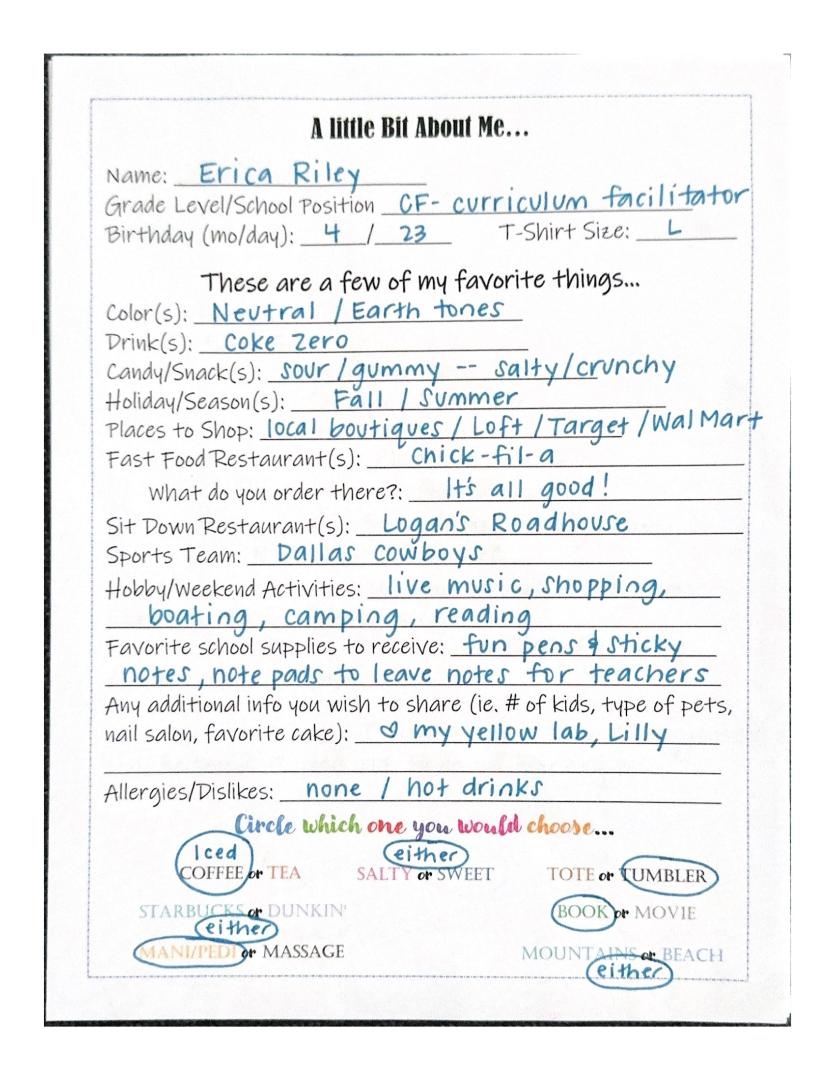 A little Bit About Me...
Name: Erica Riley
Grade Level/School Position CF- curriculum facilitator
Birthday (mo/day): 4 / 23 T-Shirt Size: L
These are a few of my favorite things...
Color(s): Neutral / Earth tones
Drink(s): Coke Zero
Candy/Snack(s): sour / gummy -- salty/crunchy
Holiday/Season(s): Fall / Summer
Places to Shop: local boutiques / Loft / Target / WalMart
Fast Food Restaurant(s): Chick-fil-a
What do you order there?: It's all good!
Sit Down Restaurant(s): Logan's Roadhouse
Sports Team: Dallas Cowboys
Hobby/Weekend Activities: live music, shopping,
boating, camping, reading
Favorite school supplies to receive: fun pens & sticky
notes, note pads to leave notes for teachers
Any additional info you wish to share (ie. # of kids, type of pets,
nail salon, favorite cake): ♡ my yellow lab, Lilly
Allergies/Dislikes: none / hot drinks
Circle which one you would choose...
Iced either
COFFEE or TEA SALTY or SWEET TOTE or TUMBLER
STARBUCKS or DUNKIN' BOOK or MOVIE
either
MANI/PEDI or MASSAGE MOUNTAINS or BEACH
either